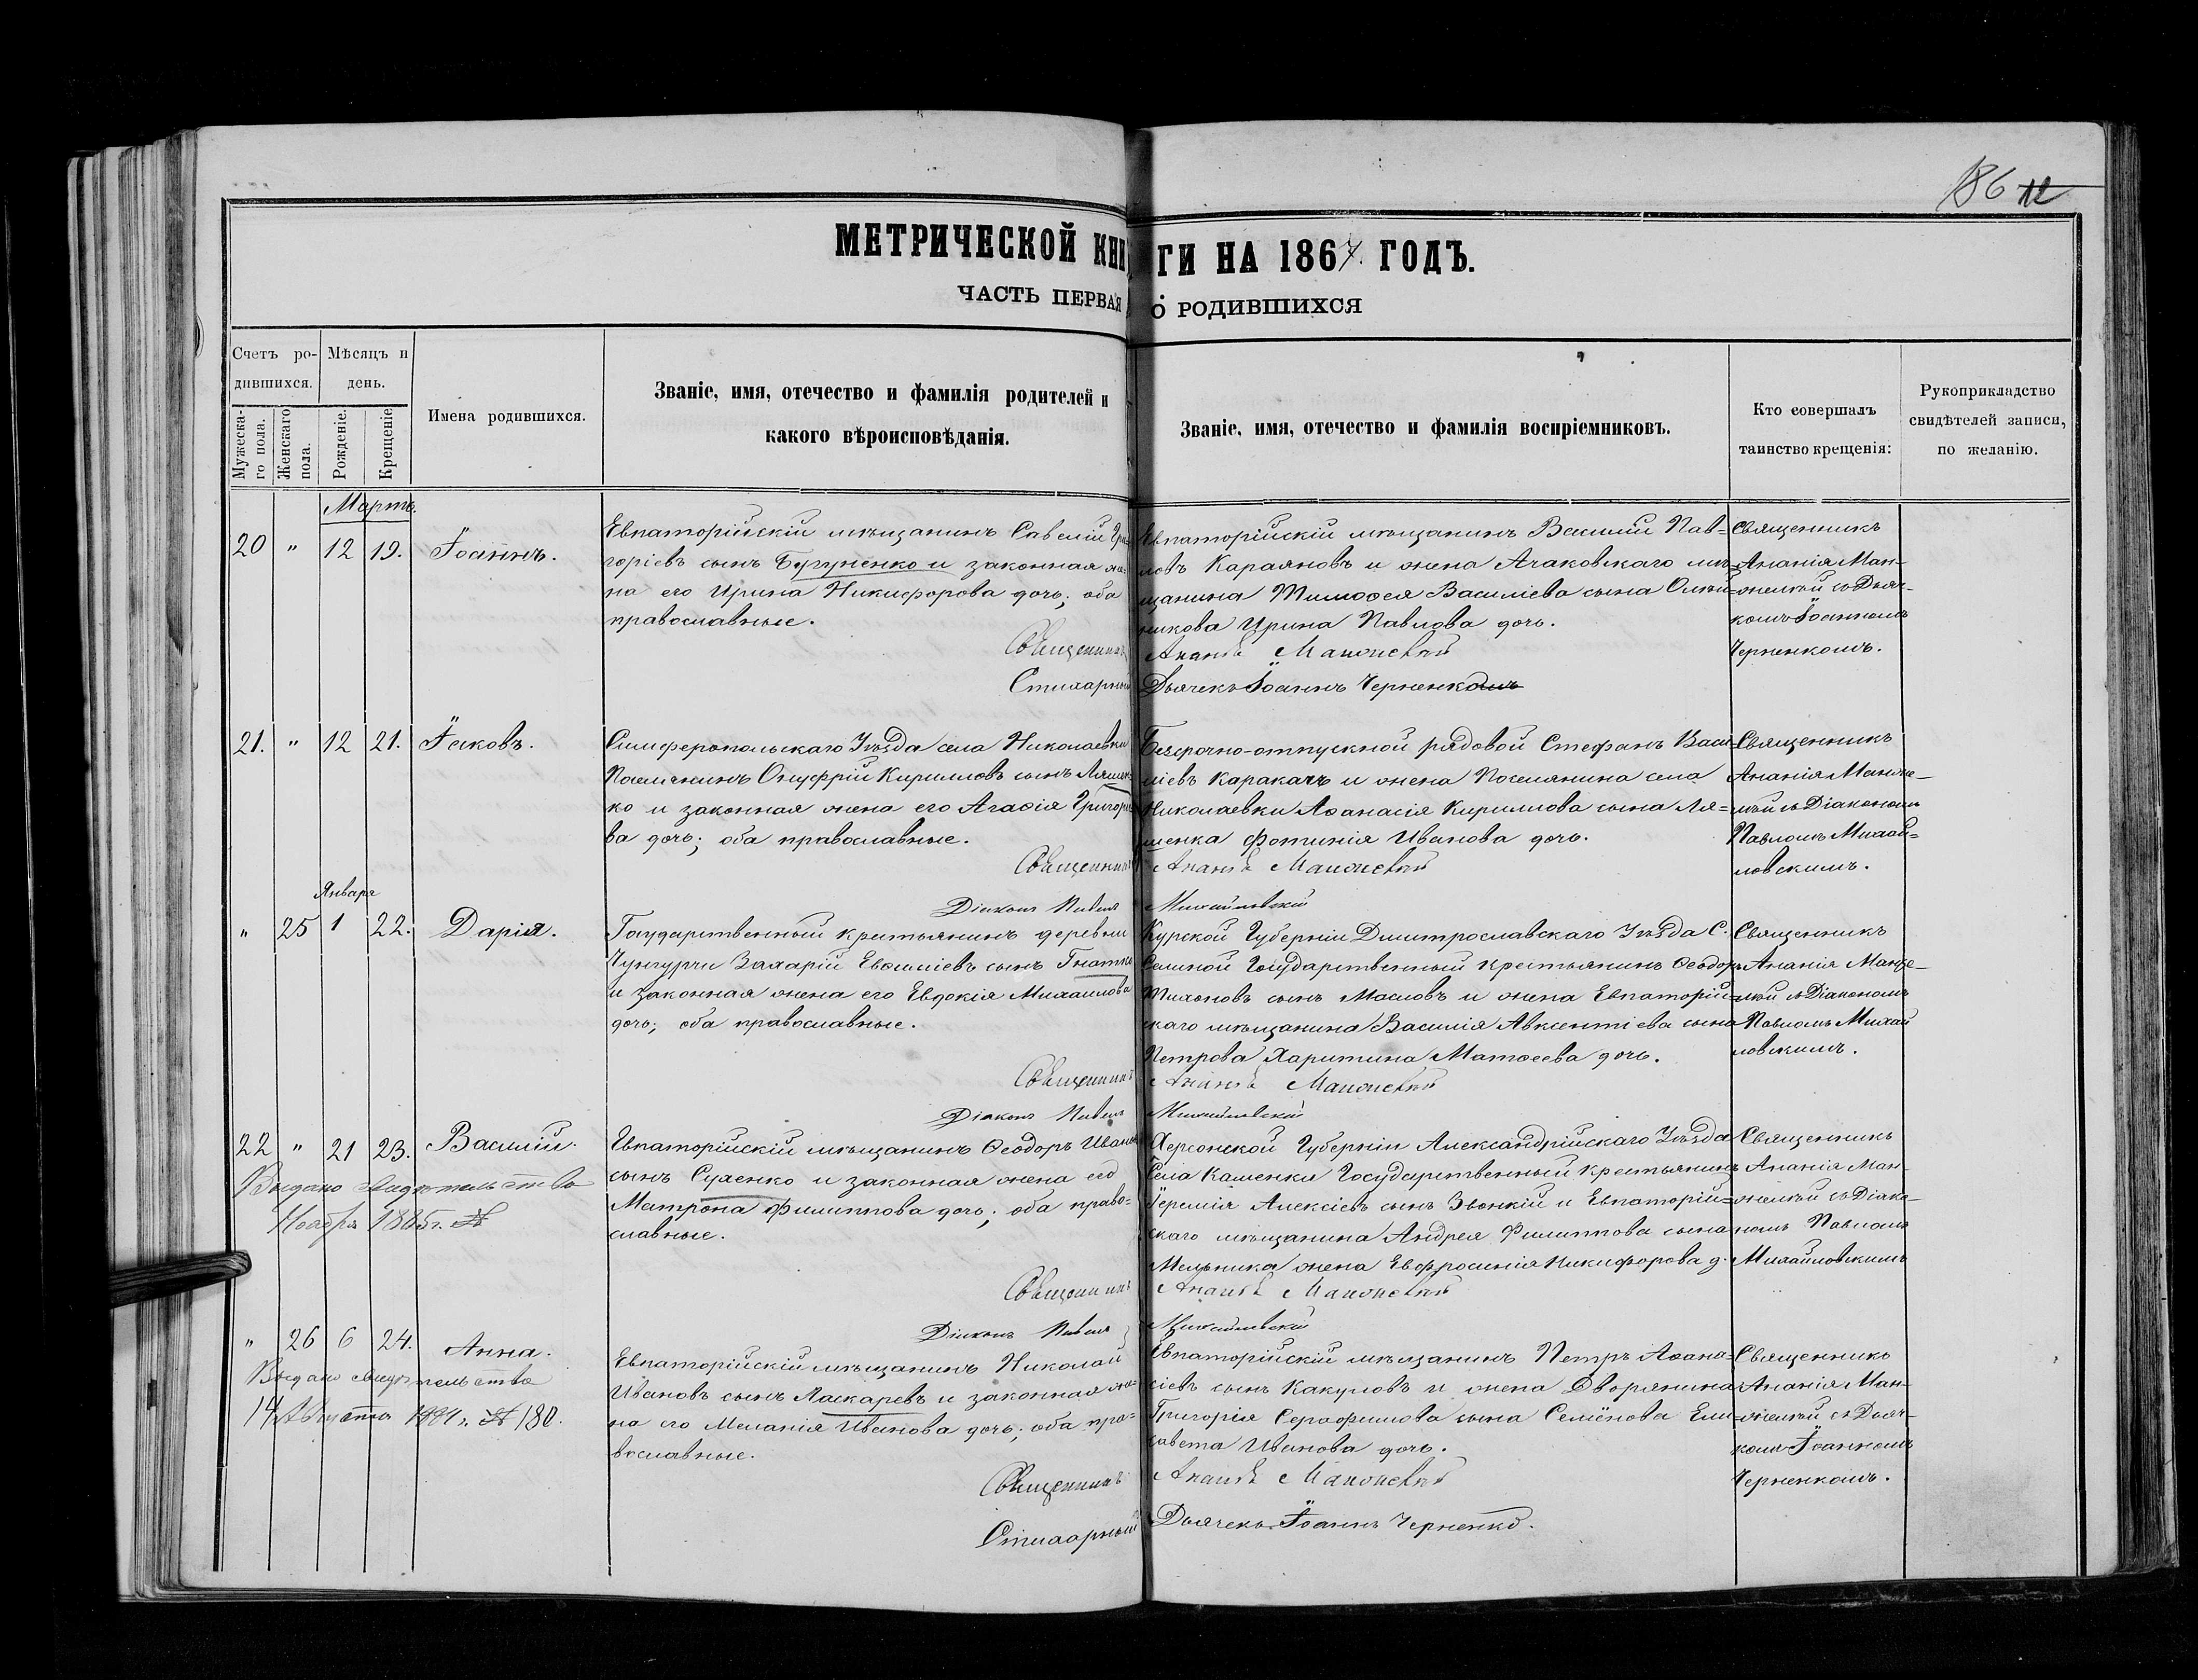 186 12
МЕТРИЧЕСКОЙ КНИГИ НА 1867. ГОДЪ.
ЧАСТЬ ПЕРВАЯ О РОДИВШИХСЯ
Счетъ ро-
дившихся.
Мѣсяцъ и
день.
Мужеска-
го пола.
Женскаго
пола.
Рожденіе.
Крещеніе
Имена родившихся.
Званіе, имя, отечество и фамилія родителей и
какого вѣроисповѣданія.
Званіе, имя, отечество и фамилія воспріемниковъ.
Кто совершалъ
таинство крещенія:
Рукоприкладство
свидѣтелей записи,
по желанію.
Мартъ.
20 " 12 19. Іоаннъ.
Евпаторійскій мѣщанинъ Савелій Гри-
горіевъ сынъ Бугуненко и законная же-
на его Ирина Никифорова дочь; оба
православные.
Евпаторійскій мѣщанинъ Василій Пав-
ловъ Караяновъ и жена Ачаковскаго мѣ-
щанина Тимоѳея Василіева сына Олей-
никова Ирина Павлова дочь.
Священникъ
Ананія Ман-
желей съ Дьяч-
комъ Іоанномъ
Черненкомъ.
Священникъ Ананія
Стихарный Дьячекъ Іоаннъ Черненкомъ
21. " 12 21. Іаковъ.
Симферопольскаго Уѣзда села Николаевки
Поселянинъ Онуфрій Кирилловъ сынъ Ляшен-
ко и законная жена его Агаѳія Григорье-
ва дочь; оба православные.
Безсрочно-отпускной рядовой Стефанъ Васи-
ліевъ Каракачъ и жена Поселянина села
Николаевки Аѳанасія Кириллова сына Ля-
шенка Фотинія Иванова дочь.
Священникъ
Ананія Манже-
лей съ Діакономъ
Павломъ Михай-
ловскимъ.
Священникъ Ананія
Діаконъ Павелъ Михайловскій
Января
" 25 1 22. Дарія.
Государственный крестьянинъ деревни
Чунгурчи Захарій Евѳиміевъ сынъ Гнатко
и законная жена его Евдокія Михаилова
дочь; оба православные.
Курской Губерніи Дмитрославскаго Уѣзда С.
Государственный крестьянинъ Ѳеодоръ
Тихоновъ сынъ Масловъ и жена Евпаторій-
скаго мѣщанина Василія Авксентіева сына
Петрова Харитина Матѳеева дочь.
Священникъ
Ананія Манже-
лей съ Діакономъ
Павломъ Михай
ловскимъ.
Священникъ Ананія
Діаконъ Павелъ Михайловскій
22 " 21 23. Василій.
Выдано свидѣтельство
Ноября 1885 г. №
Евпаторійскій мѣщанинъ Ѳеодоръ Ивановъ
сынъ Сухенко и законная жена его
Матрона Филиппова дочь; оба право-
славные.
Херсонской Губерніи Александрійскаго Уѣзда
Села Каменки Государственный Крестьянинъ
Іеремія Алексіевъ сынъ Звонкій и Евпаторій-
скаго мѣщанина Андрея Филиппова сына
Мельника жена Евфросинія Никифорова д.
Священникъ
Ананія Ман-
желей съ Діако-
номъ Павломъ
Михайловскимъ
Священникъ Ананія
Діаконъ Павелъ Михайловскій
" 26 6 24. Анна.
Выдано свидѣтельство
14 Августа 1884 г. № 180.
Евпаторійскій мѣщанинъ Николай
Ивановъ сынъ Ласкаревъ и законная же-
на его Меланія Иванова дочь; оба пра-
вославные.
Евпаторійскій мѣщанинъ Петръ Аѳана-
сіевъ сынъ Какуловъ и жена Дворянина
Григорія Серафимова сына Семёнова Ели-
савета Иванова дочь.
Священникъ
Ананія Ман-
желей съ Дьяч-
комъ Іоанномъ
Черненкомъ.
Священникъ Ананія
Стихарный Дьячекъ Іоаннъ Черненко.